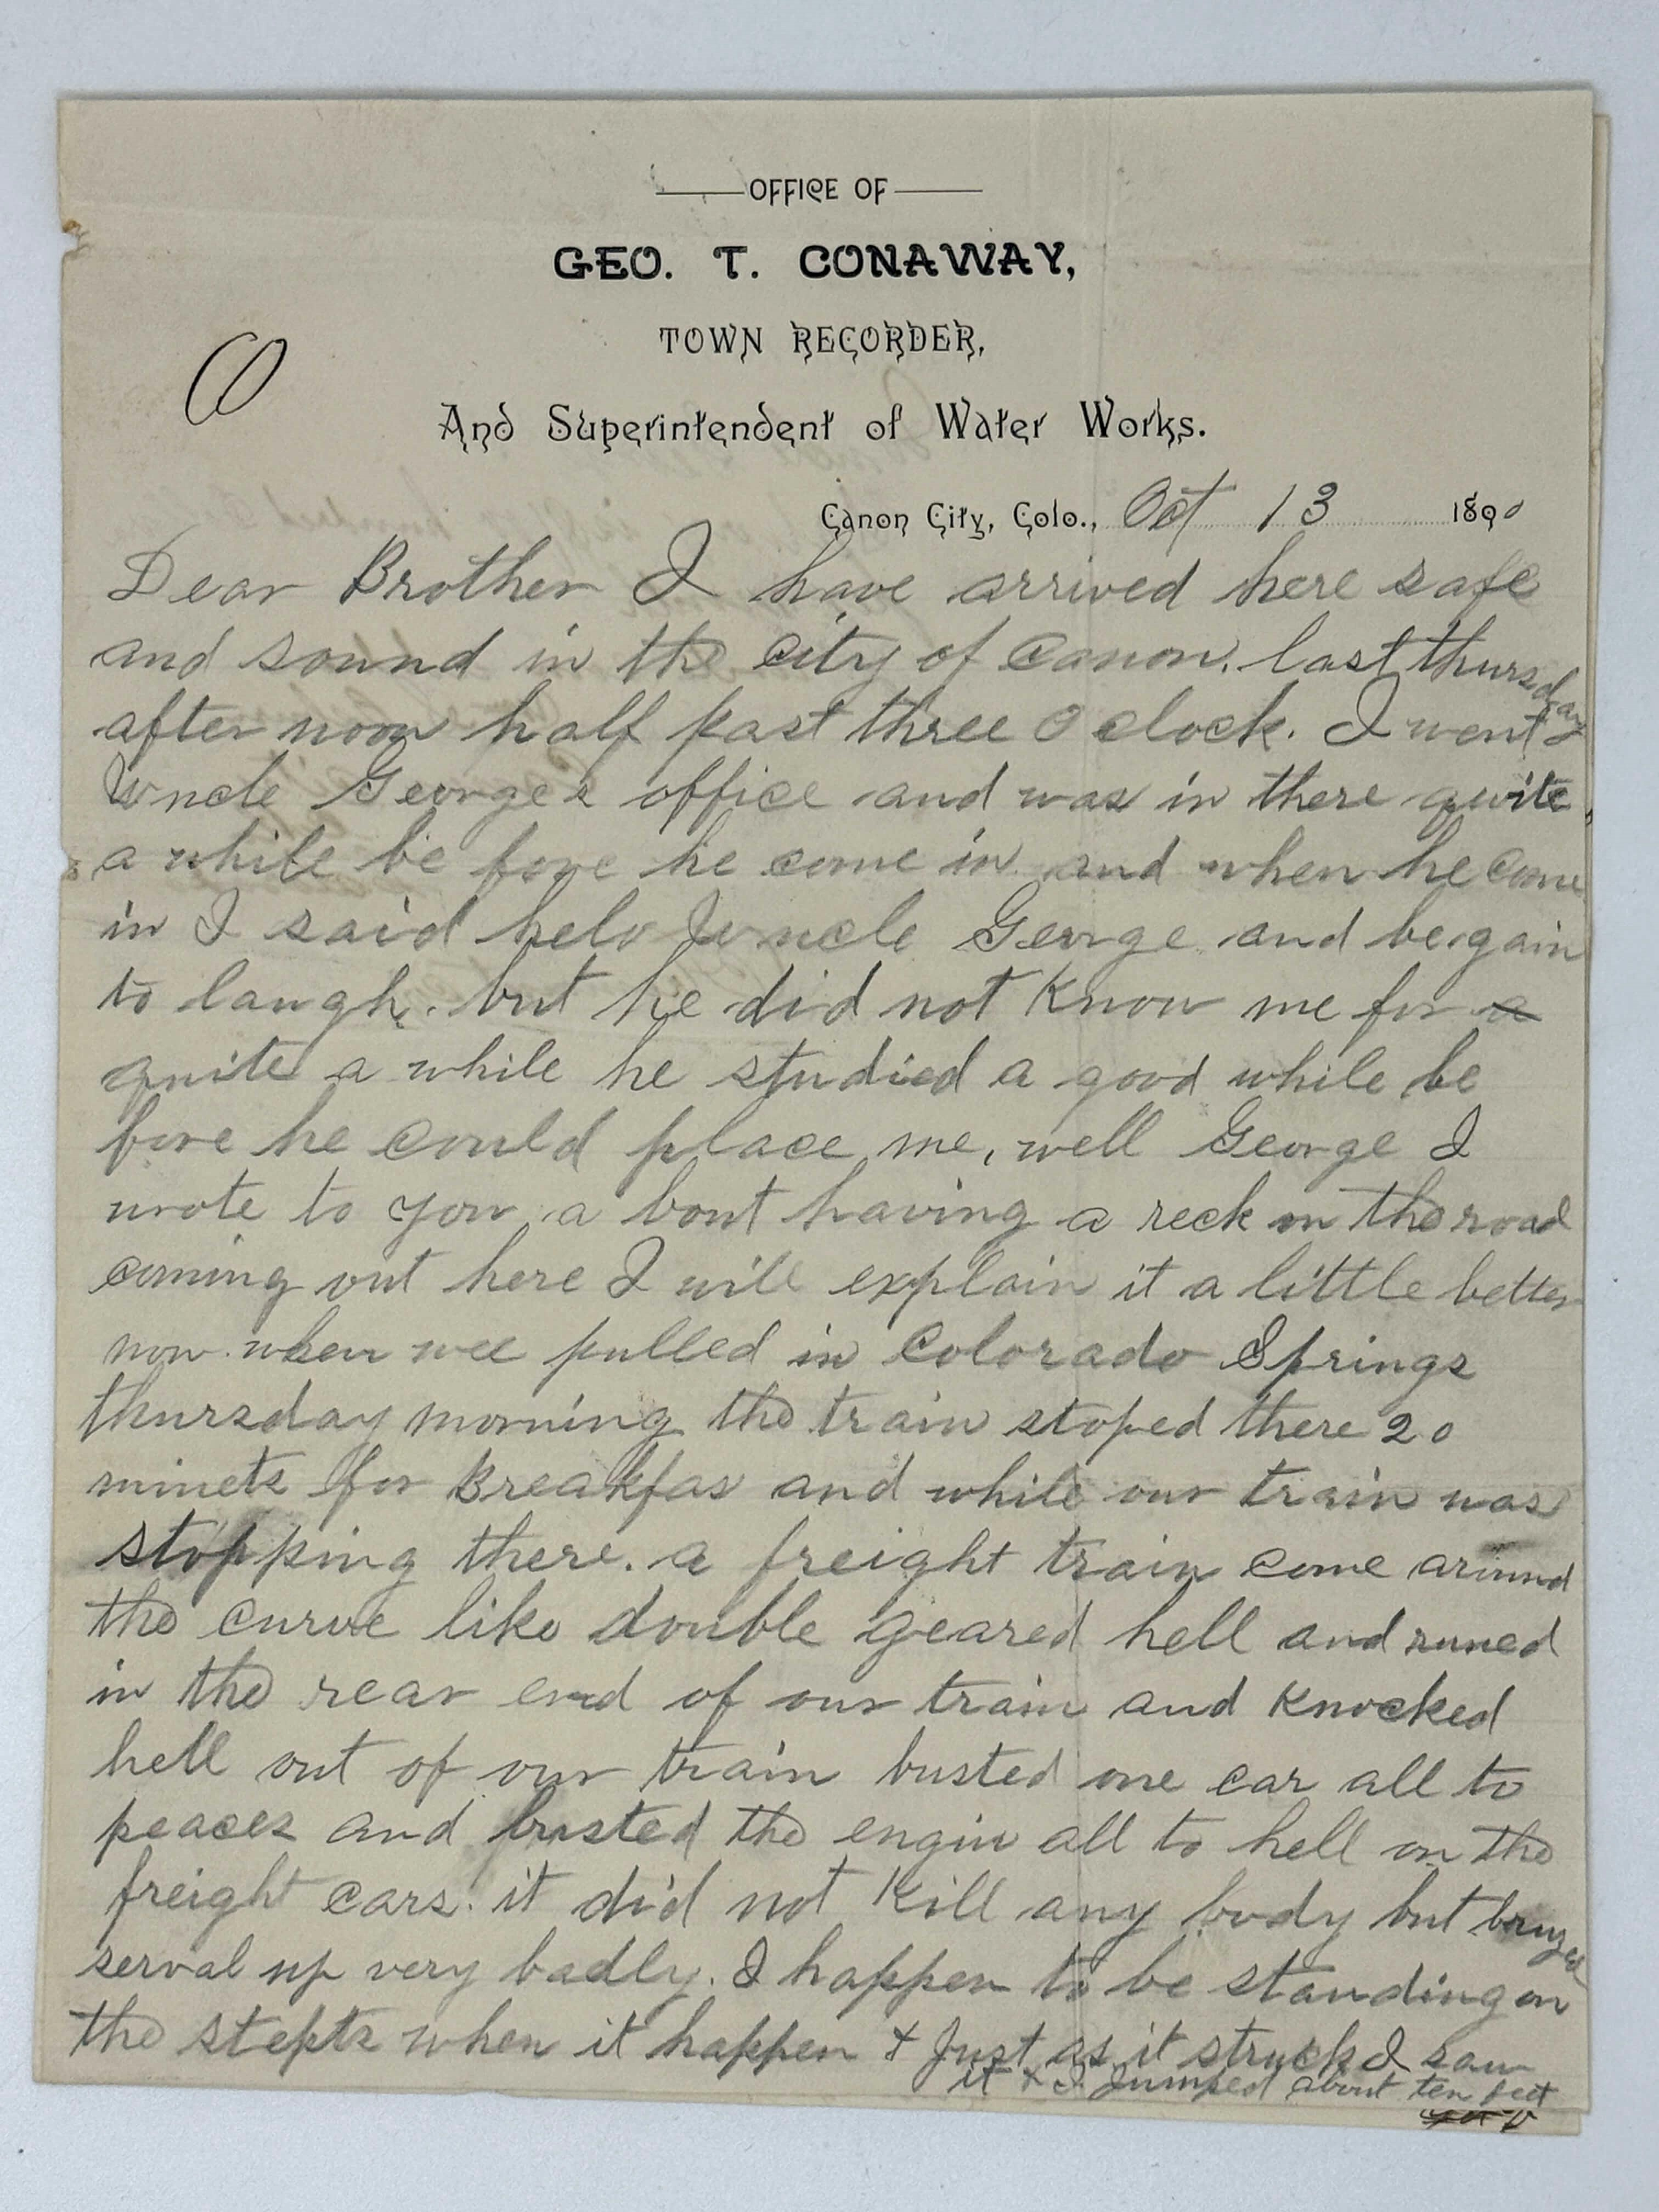 OFFICE OF
GEO. T. CONAWAY,
TOWN RECORDER,
And Superintendent of Water Works.
Canon City, Colo., Oct 13 1890
Dear Brother I have arrived here safe
and sound in the City of Canon. last thursday
after noon half past three O clock. I went
Uncle Georges office and was in there quite
a while be fore he come in and when he come
in I said helo Uncle George and begain
to laugh. but he did not Know me for a
quite a while he studied a good while be
fore he could place me, well George I
wrote to you a bout having a reck on the road
coming out here I will explain it a little better
now. when wee pulled in Colorado Springs
thursday morning the train stoped there 20
minets for Breakfas and while our train was
stopping there. a freight train come around
the curve like double geared hell and runed
in the rear end of our train and Knocked
hell out of our train busted one car all to
peaces and busted the engin all to hell on the
freight cars. it did not Kill any body but bruzed
serval up very badly. I happen to be standing on
the stepts when it happen + Just as it struck I saw
it + I Jumped about ten feet